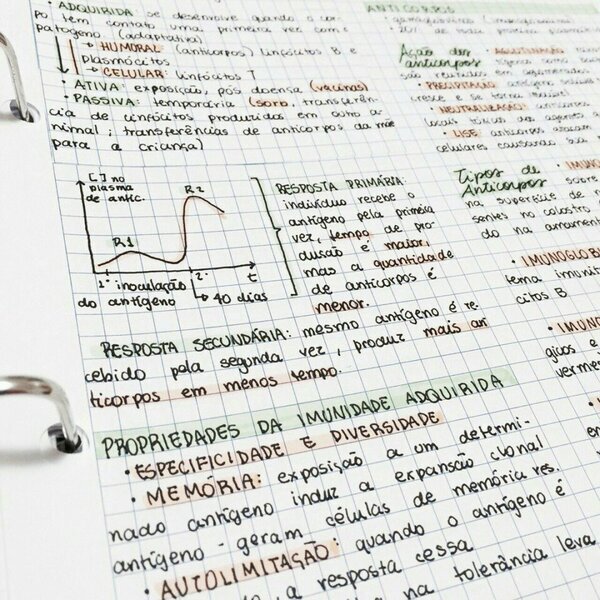 • ADQUIRIDA se desenvolve quando o cor-
po tem contato uma primeira vez com
patógeno (adaptativa)
→ HUMORAL (anticorpos) linfócitos B e
plasmócitos
→ CELULAR: linfócitos T
• ATIVA: exposição, pós doensa (vacinas)
• PASSIVA: temporária (soro, transferên-
cia de linfócitos produzidos em outro a
nimal; transferências de anticorpos da mãe
para a criança)
[ ] no
plasma
de antic.
R1
R2
1ª inoculação
do antígeno
2ª
t
↳ 40 dias
RESPOSTA PRIMÁRIA:
indivíduo recebe o
antígeno pela primeira
vez, tempo de pro-
dusão é maior,
mas a quantidade
de anticorpos é
menor.
RESPOSTA SECUNDÁRIA: mesmo antígeno é re-
cebido pela segunda vez, produz mais an
ticorpos em menos tempo.
PROPRIEDADES DA IMUNIDADE ADQUIRIDA
• ESPECIFICIDADE E DIVERSIDADE
• MEMÓRIA: exposição a um determi-
nado antígeno induz a expansão clonal
antígeno - geram células de memória res.
• AUTOLIMITAÇÃO: quando o antígeno é
, a resposta cessa
na tolerância leva
ANTICORPOS
Ação dos
anticorpos
• AGLUTINAÇÃO
são
• PRECIPITAÇÃO
cresce e se torna
• NEUTRALIZAÇÃO:
locais
• LISE: anticorpos atacam
celulares causando sua
Tipos de
Anticorpos
• IMUNO
sobre
na superfície de
sentes no colostro
do na
• IMUNOGLOB
tema imunit
citos B.
• IMUNO
gicos e
verme